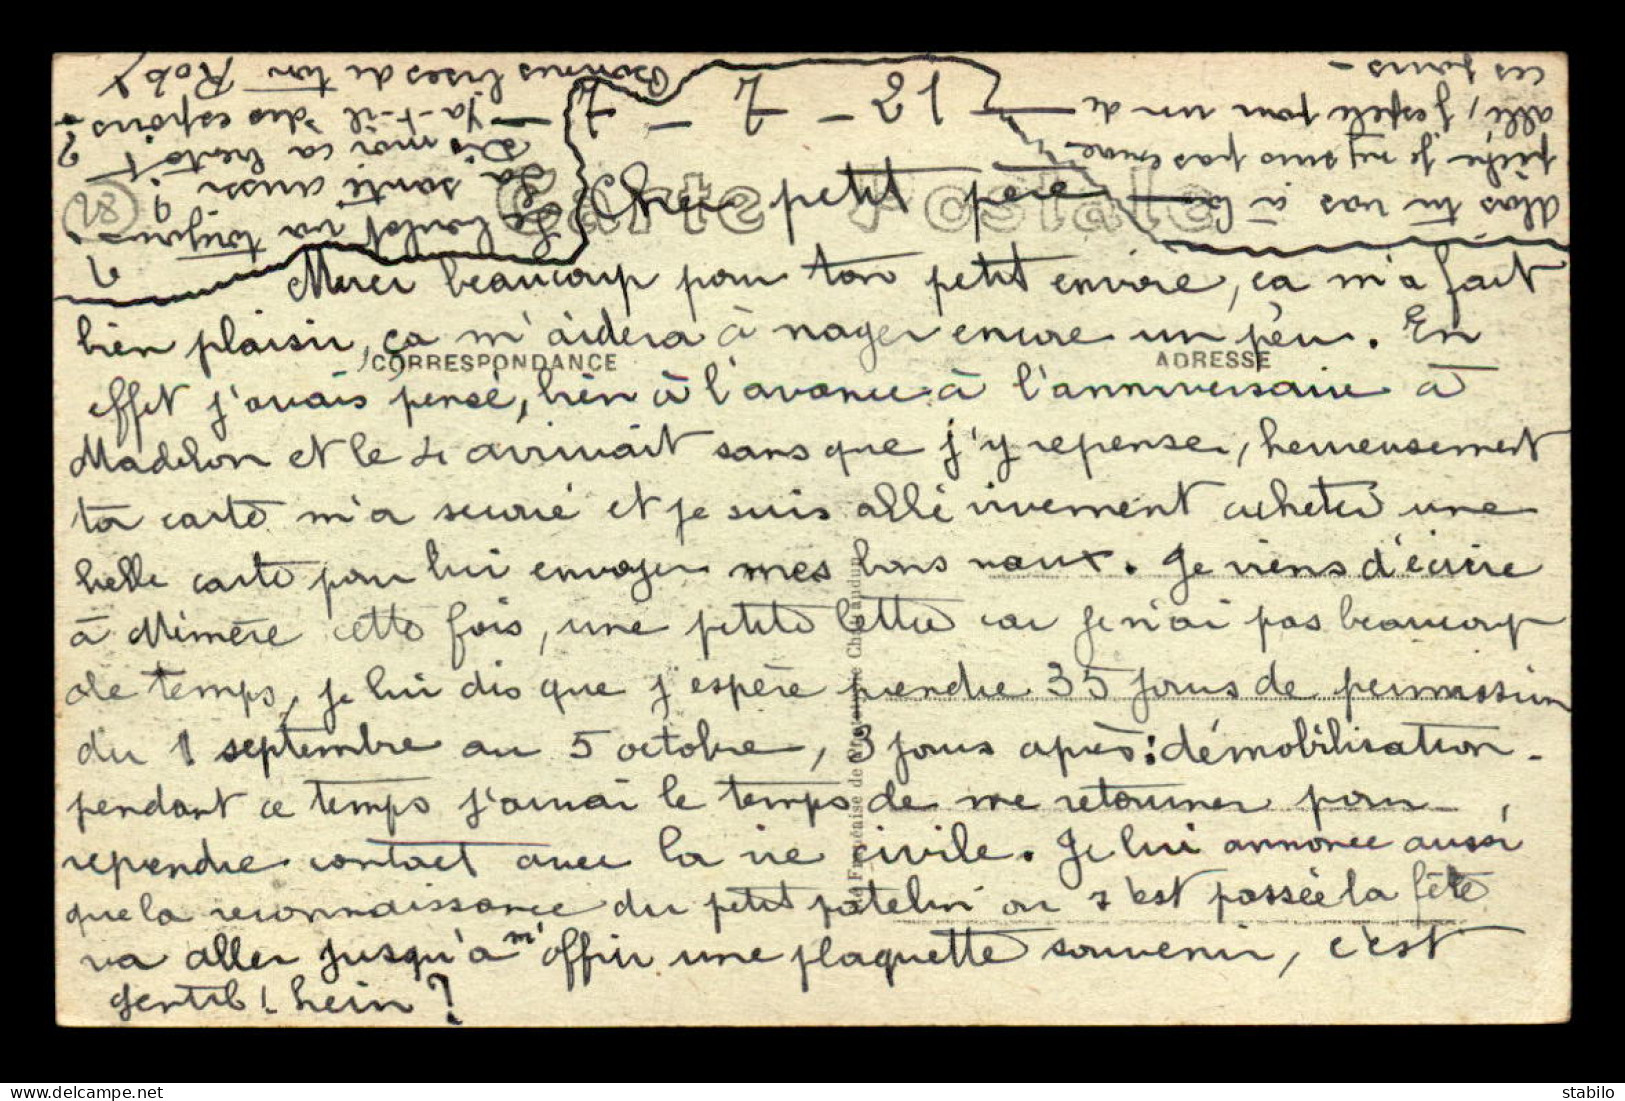 12 - 7 - 
Carte Postale
Cher petit père
Merci beaucoup pour ton petit envoie, ça m'a fait
bien plaisir, ça m'aidera à nager encore un peu. En
CORRESPONDANCE
ADRESSE
effet j'avais pensé, bien à l'avance à l'anniversaire à
Madelon et le 4 arrivait sans que j'y repense, heureusement
ta carte m'a secoué et je suis allé vivement acheter une
belle carte pour lui envoyer mes bons vœux. Je viens d'écrire
à Mémère cette fois, une petite lettre car je n'ai pas beaucoup
de temps, je lui dis que j'espère prendre 35 jours de permission
du 1 septembre au 5 octobre, 3 jours après : démobilisation -
pendant ce temps j'aurai le temps de me retourner pour
reprendre contact avec la vie civile. Je lui annonce aussi
que la reconnaissance du petit patelin où s'est passée la fête
va aller jusqu'à m'offrir une plaquette souvenir, c'est
gentil ! hein ?
Alors tu vas à la
pêche je n'y suis pas encore
allé, j'espère pour un de
ces jours -
Le boulot va toujours ?
La santé aussi ?
Dis moi ça bientôt
- Y a-t-il des espoirs ?
Bonnes bises de ton Rob
28